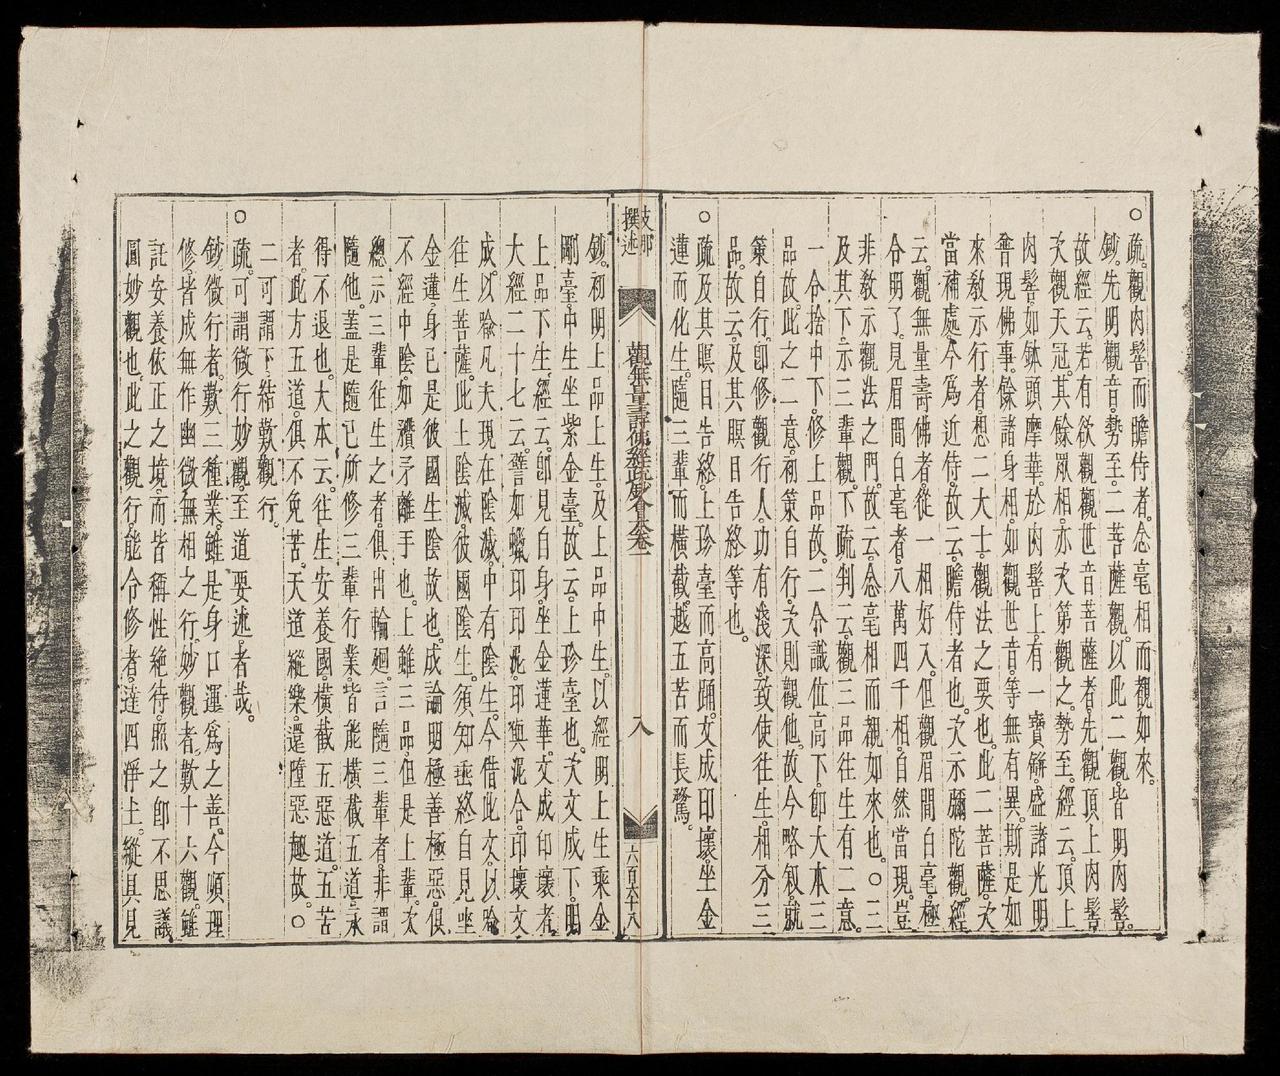 ○疏。觀肉髻而瞻侍者。念毫相而覩如來。
鈔。先明觀音。勢至。二菩薩觀。以此二觀。皆明肉髻。
故經云。若有欲觀觀世音菩薩者。先觀頂上肉髻。
次觀天冠。其餘眾相。亦次第觀之。勢至。經云。頂上
肉髻。如鉢頭摩華。於肉髻上。有一寶缾。盛諸光明。
普現佛事。餘諸身相。如觀世音。等無有異。斯是如
來教示行者。想二大士。觀法之要也。此二菩薩。次
當補處。今為近侍。故云。瞻侍者也。次示彌陀觀。經
云。觀無量壽佛者。從一相好入。但觀眉間白毫。極
令明了。見眉間白毫者。八萬四千相。自然當現。豈
非教示觀法之門。故云。念毫相而覩如來也。○三
及其下。示三輩觀。下疏判云。觀三品往生有二意。
一令捨中下。修上品故。二令識位高下。即大本三
品故。此之二意。初策自行。次則觀他。故今略敘。就
策自行。即修觀行人。功有淺深。致使往生。相分三
品。故云。及其瞑目告終等也。
○疏。及其瞑目告終。上珍臺而高踊。文成印壞。坐金
蓮而化生。隨三輩而橫截。越五苦而長騖。
支那
撰述
觀無量壽佛經疏鈔會本卷一
八
六百六十八
鈔。初明上品上生。及上品中生。以經明上生乘金
剛臺。中生坐紫金臺。故云。上珍臺也。次文成下。明
上品下生。經云。即見自身。坐金蓮華。文成印壞者。
大經二十七云。譬如蠟印印泥。印與泥合。印壞文
成。以喻凡夫。現在陰滅。中有陰生。今借此文。以喻
往生菩薩。此土陰滅。彼國陰生。須知垂終。自見坐
金蓮。身已是彼國生陰故也。成論明極善極惡。俱
不經中陰。如䂎矛離手也。上雖三品。但是上輩。次
總示三輩往生之者。俱出輪廻。言隨三輩者。非謂
隨他。蓋是隨己所修三輩行業。皆能橫截五道。永
得不退也。大本云。往生安養國。橫截五惡道。五苦
者。此方五道。俱不免苦。天道縱樂。還墮惡趣故。○
二可謂下。結歎觀行。
○疏。可謂微行妙觀。至道要述者哉。
鈔。微行者。歎三種業。雖是身口運為之善。今順理
修。皆成無作幽微。無相之行。妙觀者。歎十六觀。雖
託安養。依正之境。而皆稱性。絕待。照之。即不思議。
圓妙觀也。此之觀行。能令修者。達四淨土。縱具見